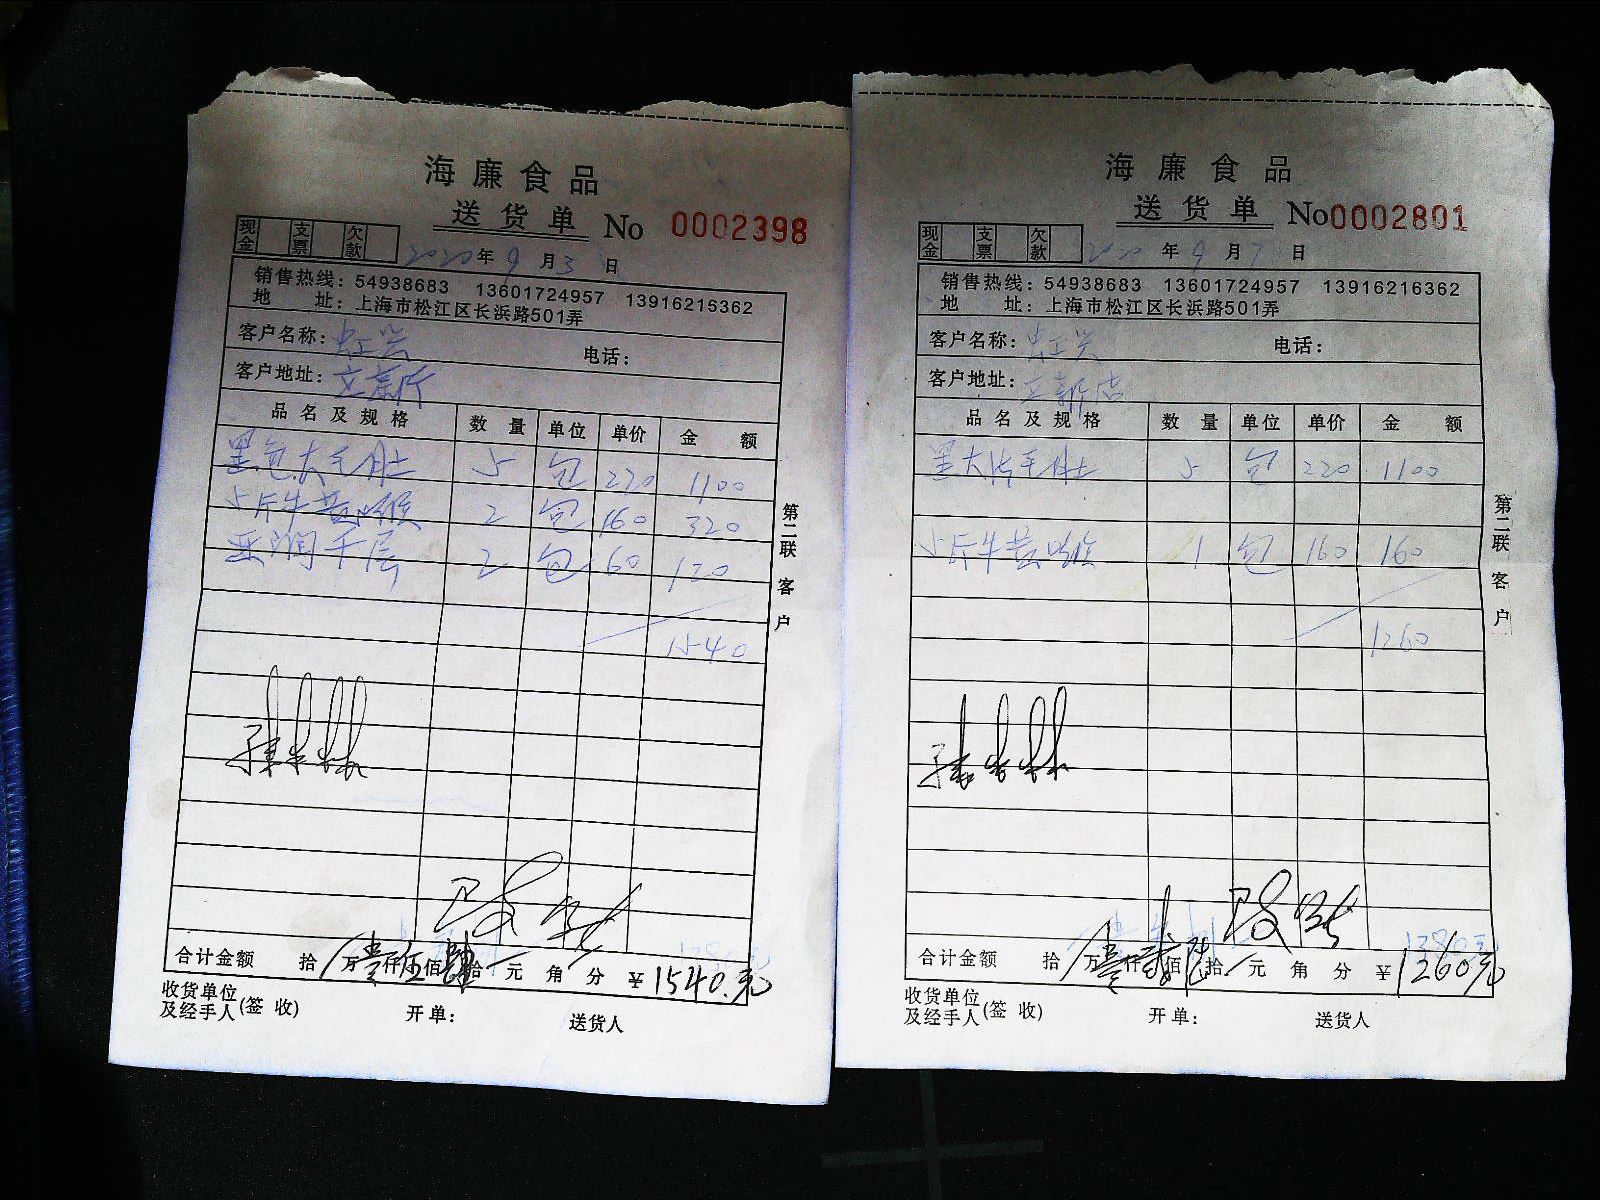 海廉食品
送货单 No 0002398
现金 支票 欠款 2020年9月3日
销售热线：54938683 13601724957 13916215362
地 址：上海市松江区长浜路501弄
客户名称：
电话：
客户地址：
品名及规格 数量 单位 单价 金额
黑色大毛肚 5 包 220 1100
牛黄喉 2 包 160 320
千层 2 包 60 120
1540
合计金额 拾 万壹仟伍佰肆拾 元 角 分 ￥1540.元
收货单位及经手人(签收) 开单： 送货人
第二联 客户
海廉食品
送货单 No0002801
现金 支票 欠款 2020年9月7日
销售热线：54938683 13601724957 13916216362
地 址：上海市松江区长浜路501弄
客户名称：
电话：
客户地址：
品名及规格 数量 单位 单价 金额
黑大片毛肚 5 包 220 1100
牛黄喉 1 包 160 160
1260
合计金额 拾 万壹仟贰佰陆拾 元 角 分 ￥1260元
收货单位及经手人(签收) 开单： 送货人
第二联 客户